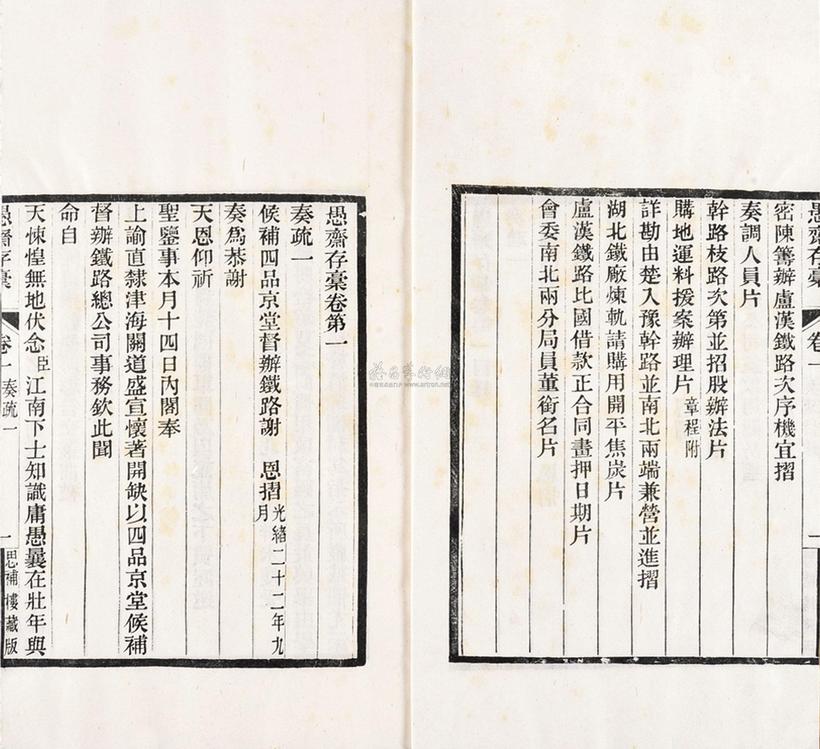 愚齋存稾
卷一
一
密陳籌辦盧漢鐵路次序機宜摺
奏調人員片
幹路枝路次第並招股辦法片
購地運料援案辦理片 章程附
詳勘由楚入豫幹路並南北兩端兼營並進摺
湖北鐵厰煉軌請購用開平焦炭片
盧漢鐵路比國借款正合同畫押日期片
會委南北兩分局員董銜名片
愚齋存稾卷第一
奏疏一
候補四品京堂督辦鐵路謝　恩摺 光緒二十二年九月
奏為恭謝
天恩仰祈
聖鑒事本月十四日內閣奉
上諭直隸津海關道盛宣懷著開缺以四品京堂候補
督辦鐵路總公司事務欽此聞
命自
天悚惶無地伏念臣江南下士知識庸愚曩在壯年與
愚齋存稾
卷一 奏疏一
一
思補樓藏版